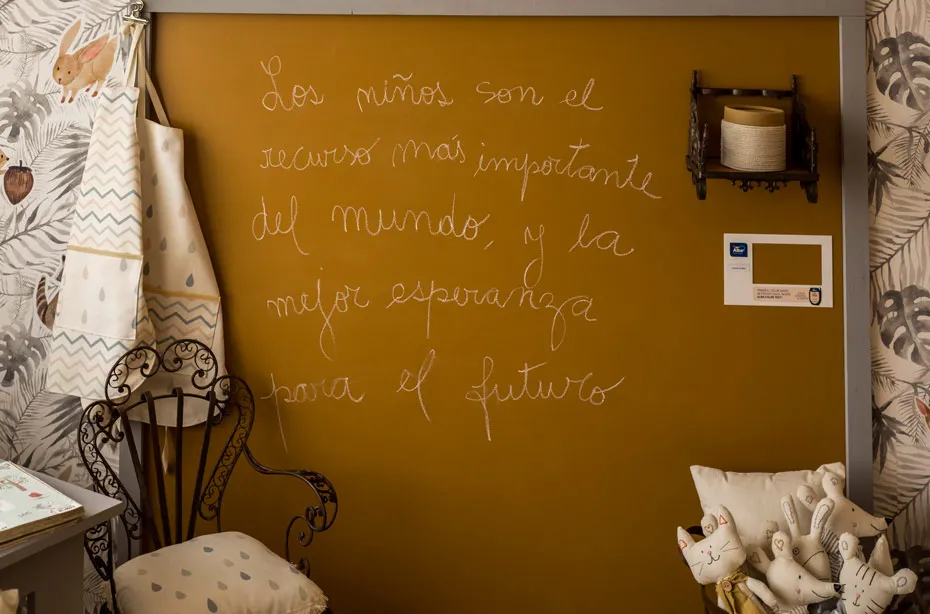 Los niños son el
recurso más importante
del mundo, y la
mejor esperanza
para el futuro